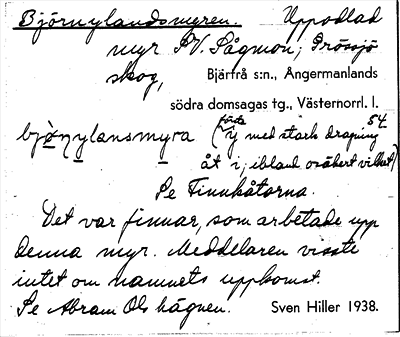 Björnylandsmyren. Uppodlad
myr SV. Sågmon; Prässjö
skog,
Bjärtrå s:n., Ångermanlands
södra domsagas tg., Västernorrl. l.
bjönylansmyra (första y med stark dragning 54
åt i; ibland osäkert vilket)
Se Finnkåtorna.
Det var finnar, som arbetade upp
denna myr. Meddelaren visste
intet om namnets uppkomst.
Se Abram Ols hägnen. Sven Hiller 1938.